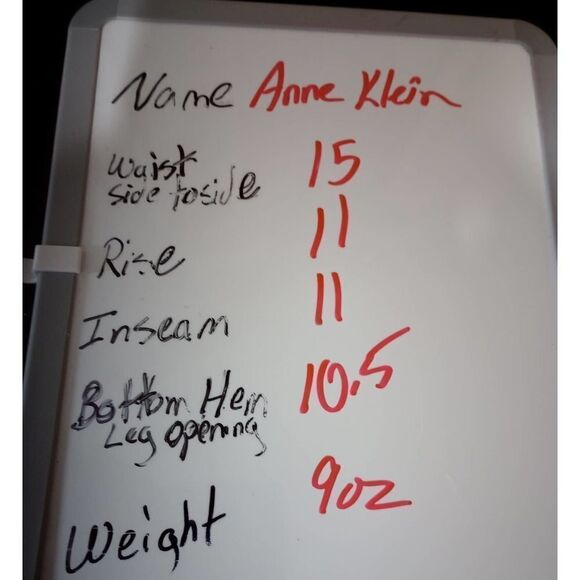 Name Anne Klein
Waist 15
side to side
Rise 11
Inseam 11
Bottom Hem 10.5
Leg opening
Weight 9oz